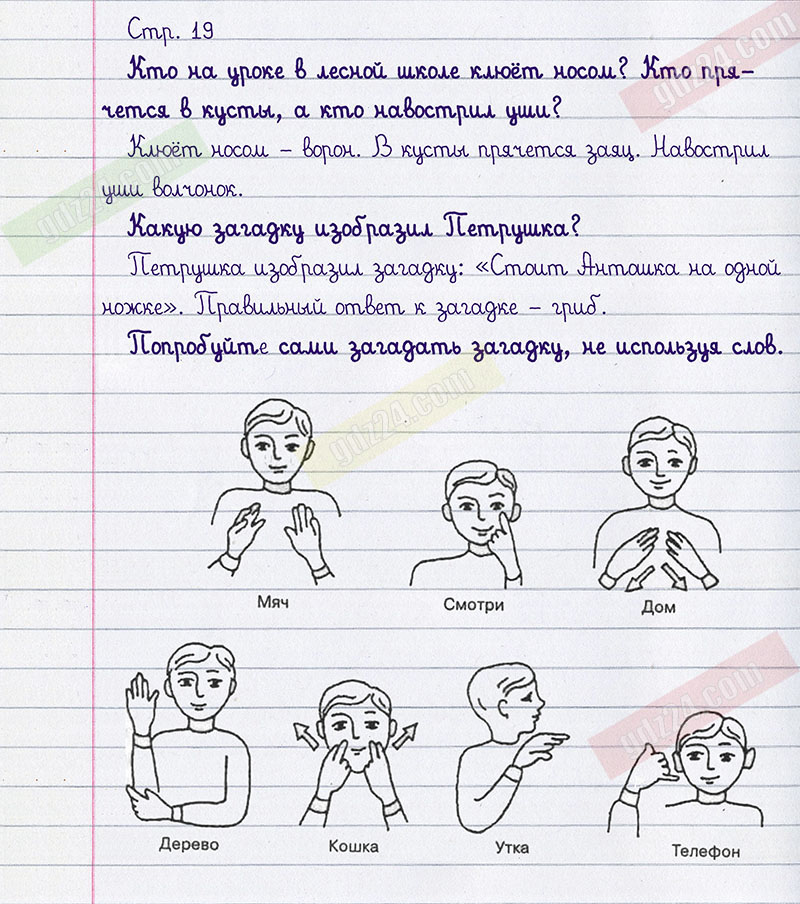 Стр. 19
Кто на уроке в лесной школе клюёт носом? Кто пря-
чется в кусты, а кто навострил уши?
Клюёт носом – ворон. В кусты прячется заяц. Навострил
уши волчонок.
Какую загадку изобразил Петрушка?
Петрушка изобразил загадку: «Стоит Анташка на одной
ножке». Правильный ответ к загадке – гриб.
Попробуйте сами загадать загадку, не используя слов.
Мяч
Смотри
Дом
Дерево
Кошка
Утка
Телефон
gdz24.com
gdz24.com
gdz24.com
gdz24.com